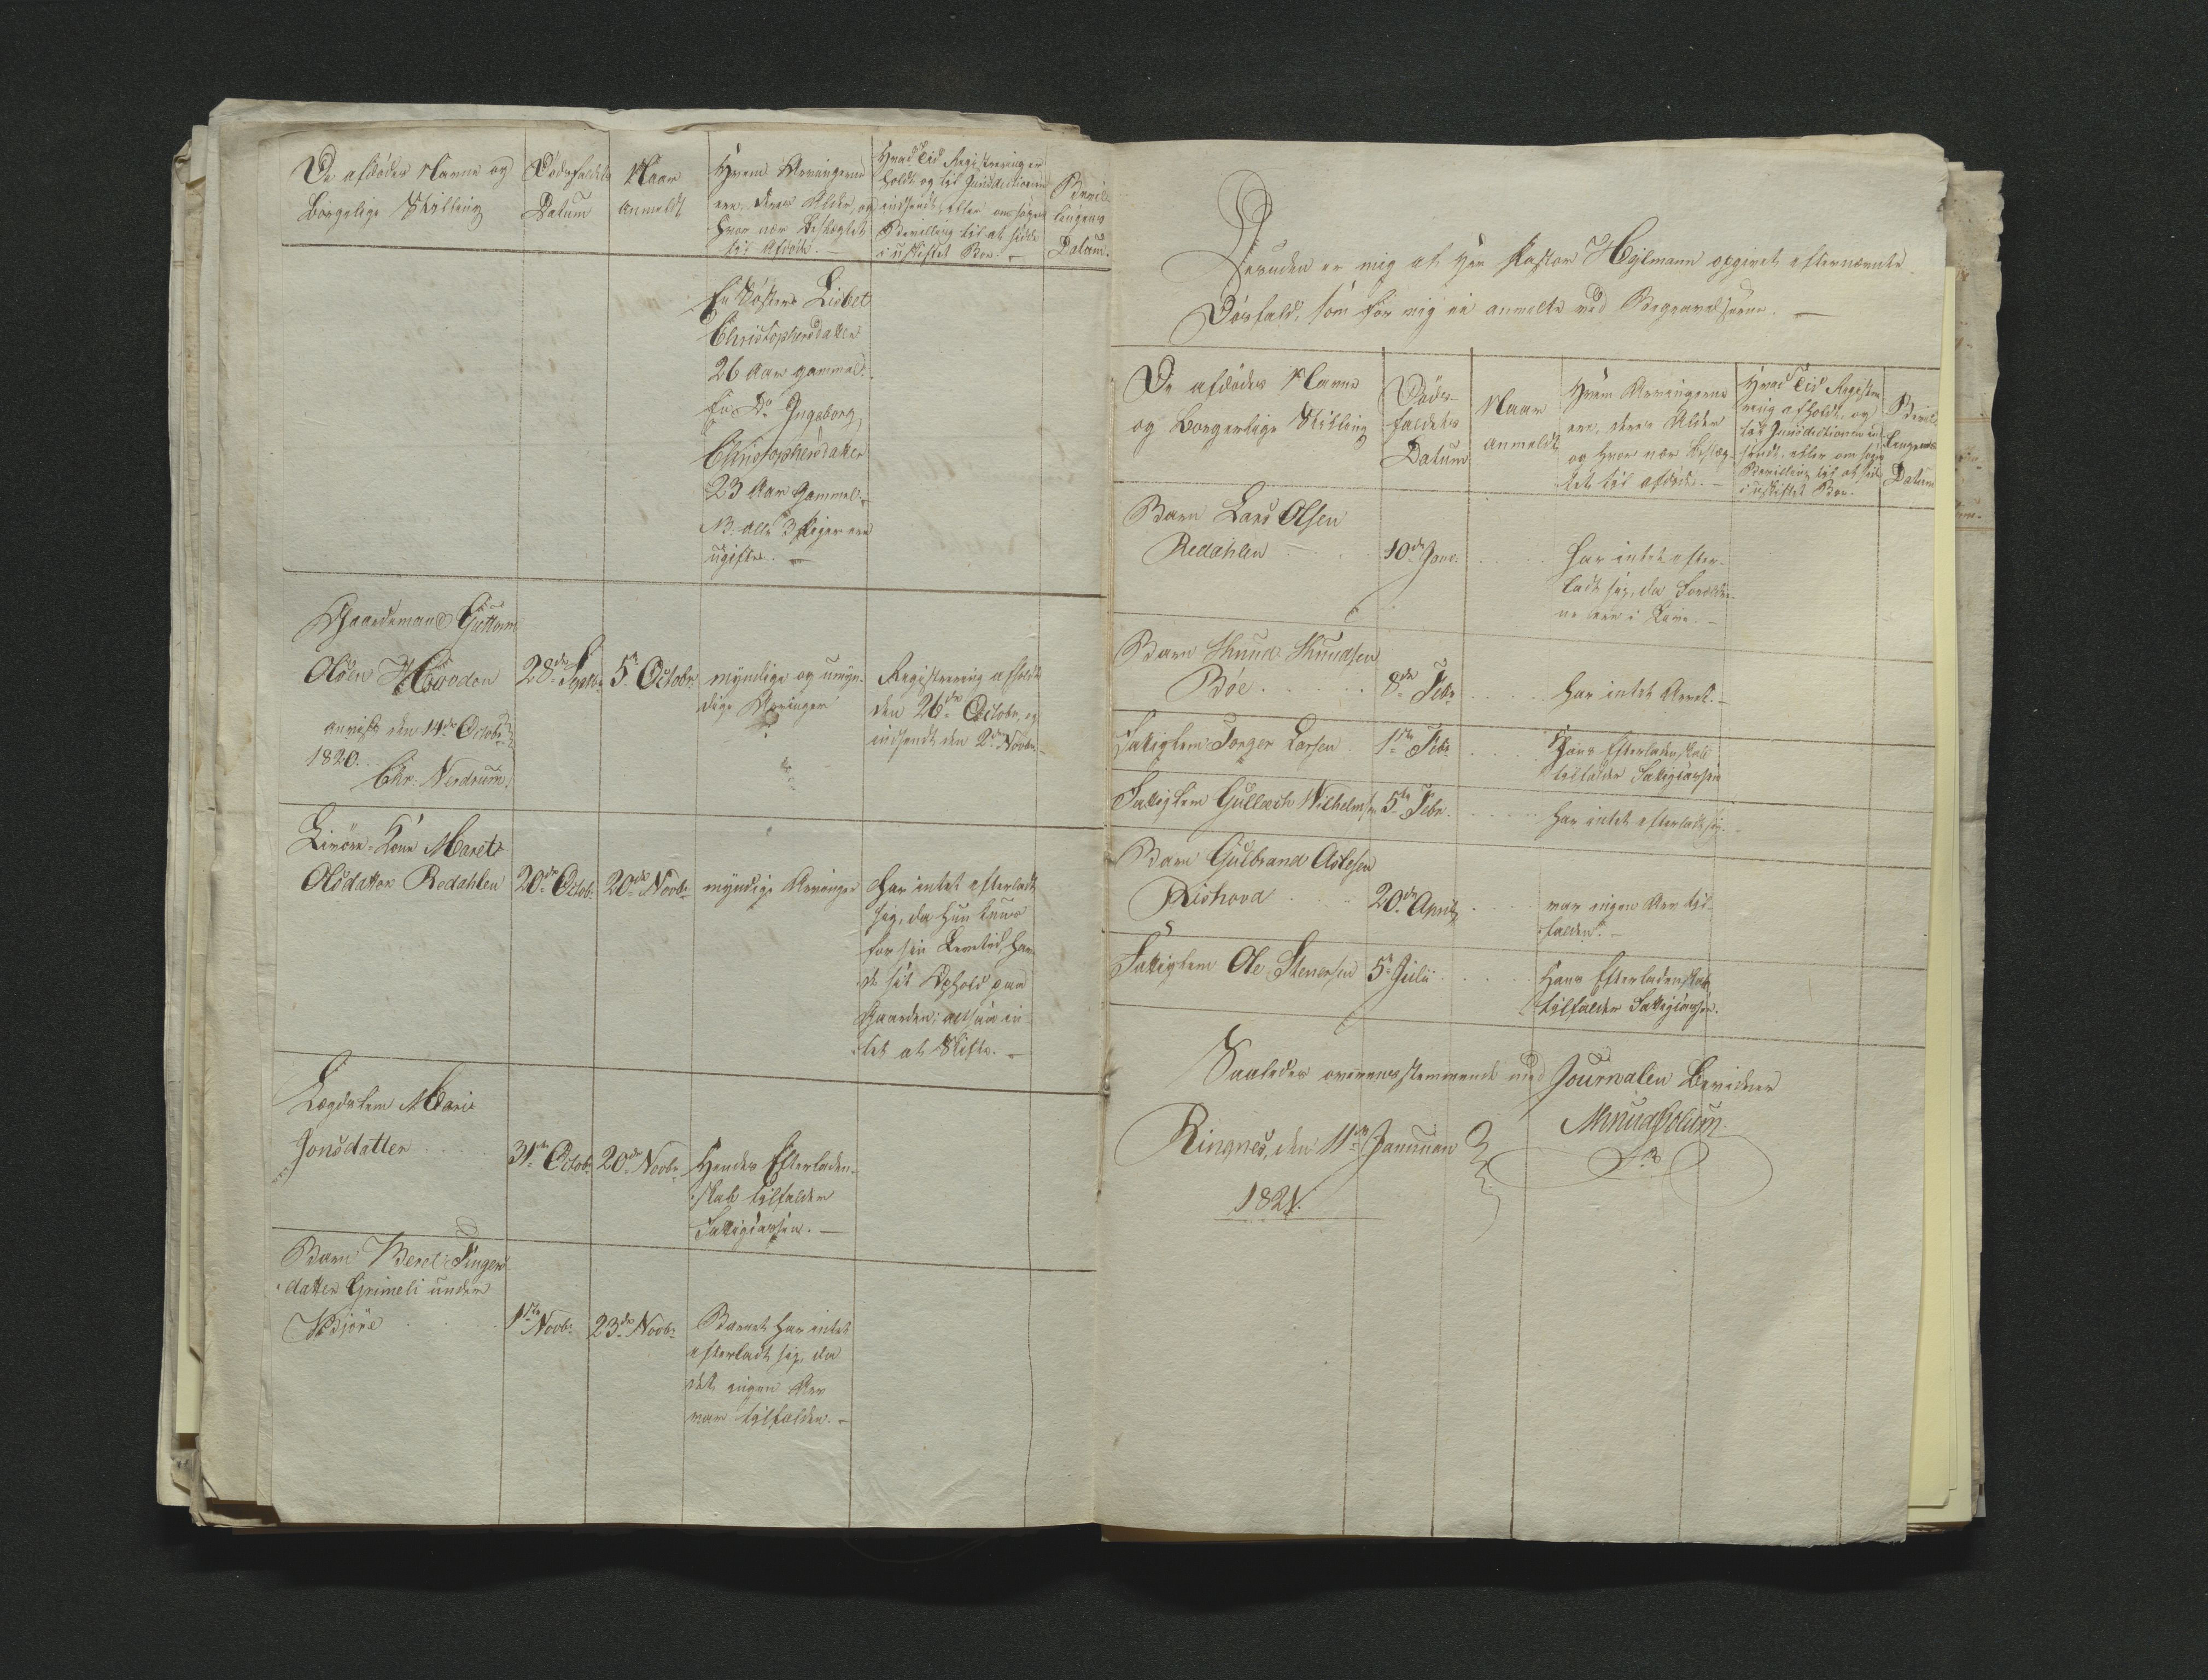 De afdødes Navne og
borgelige Stilling
Dødsfaldets
Datum
Naar
anmeldt
Hvem Arvingerne
ere, deres Alder, og
hvor nær beslægtet
til Afdøde. —
Hvad Tid Registrering er
holdt og til Jurisdictionen
indsendt, eller om søges
Bevilling til at sidde
i uskiftet Boe. —
Bevil-
lingens
Datum.
En Søster Lisbet
Christophersdatter
26 Aar gammel.
En Do Ingeborg
Christophersdatter
23 Aar Gammel.
NB. alle 3 Piger ere
ugifte. —
Gaardmand Guttorm
Olsen
28de Septbr
5te Octobr
myndige og umyn-
dige Arvinger
Registrering afholdt
den 26de Octobr, og
indsendt den 2den Novbr. —
anvist den 14de Octobr
1820.
Chr. Nerdrum.
Livøre-Kone Marete
Olsdatter Redahlen
20de Octobr
20de Novbr
myndige Arvinger
har intet efterladt
sig, da hun kuns
for sin Levetid hav-
de sit Ophold paa
Gaarden; altsaa in-
tet at Skifte. —
Lægdslem Marie
Jonsdatter
31te Octobr
20de Novbr
Hendes Efterladen-
skab tilfalder
Fattigcassen. —
Barn Berel Finger
datter Grimeli under
1ste Novbr
23de Novbr
Barnet har intet
efterladt sig, da
det ingen Arv
var tilfalden. —
Desuden er mig af Her Pastor Hejlmann opgivet efternævnte
Dösfald, som for mig ei anmeldte ved Begravelserne. —
De afdødes Navne
og borgerlige Stilling
Døds-
faldets
Datum
Naar
anmeldt
Hvem Arvingerne
ere, deres Alder
og hvor nær beslæg-
tet til afdøde. —
Hvad Tid Registre-
ring afholdt, og
til Jurisdictionen ind
sendt, eller om søges
Bevilling til at sidde
i uskiftet Boe.
Bevil-
lingens
Datum
Barn Lars Olsen
Redahlen
10de Janr.
har intet efter-
ladt sig, da Forældre-
ne ere i Live. —
Barn Knud Knudsen
Bøe
8de Febr
har intet Arvet. —
Fattiglem Torger Larsen
1ste Febr
Hans Efterladenskab
tilfalder Fattigcassen
Fattiglem Gullech Wilhelmsen
5te Febr.
har intet efterladt sig. —
Barn Gulbrand Aslesen
Rishovd
20de April
var ingen Arv til-
falden. —
Fattiglem Ole Stenersen
5te Julii
Hans Efterladenskab
tilfalder Fattigcassen.
Saaledes overensstemmende med Journalen bevidner
Ringnes, den 11te Januuari
1821.